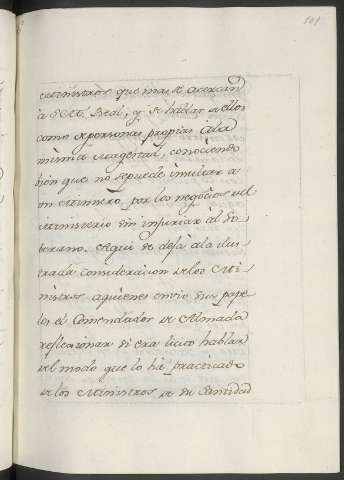 101
Ministros que mas se acercan
à S. M. Real, y se hablar a ellos
como a personas propias à la
misma Magestad, conociendo
bien que no se puede insultar a
un Ministro por los negocios del
Ministerio sin injuriar al So-
berano. Aqui se dexa à la ilus-
trada consideracion de los Mi-
nistros a quienes envio sus pape-
les el Comendador de Almada
reflexionar si era licito hablar
del modo que lo ha practicado
de los Ministros de su Santidad